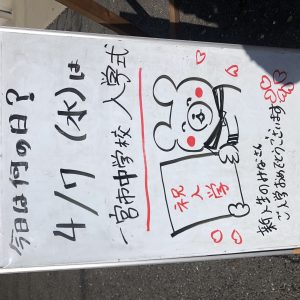 今日は何の日?
4/7 (水)は
一宮市中学校 入学式
祝入学
新入生のみなさん
ご入学おめでとうございます